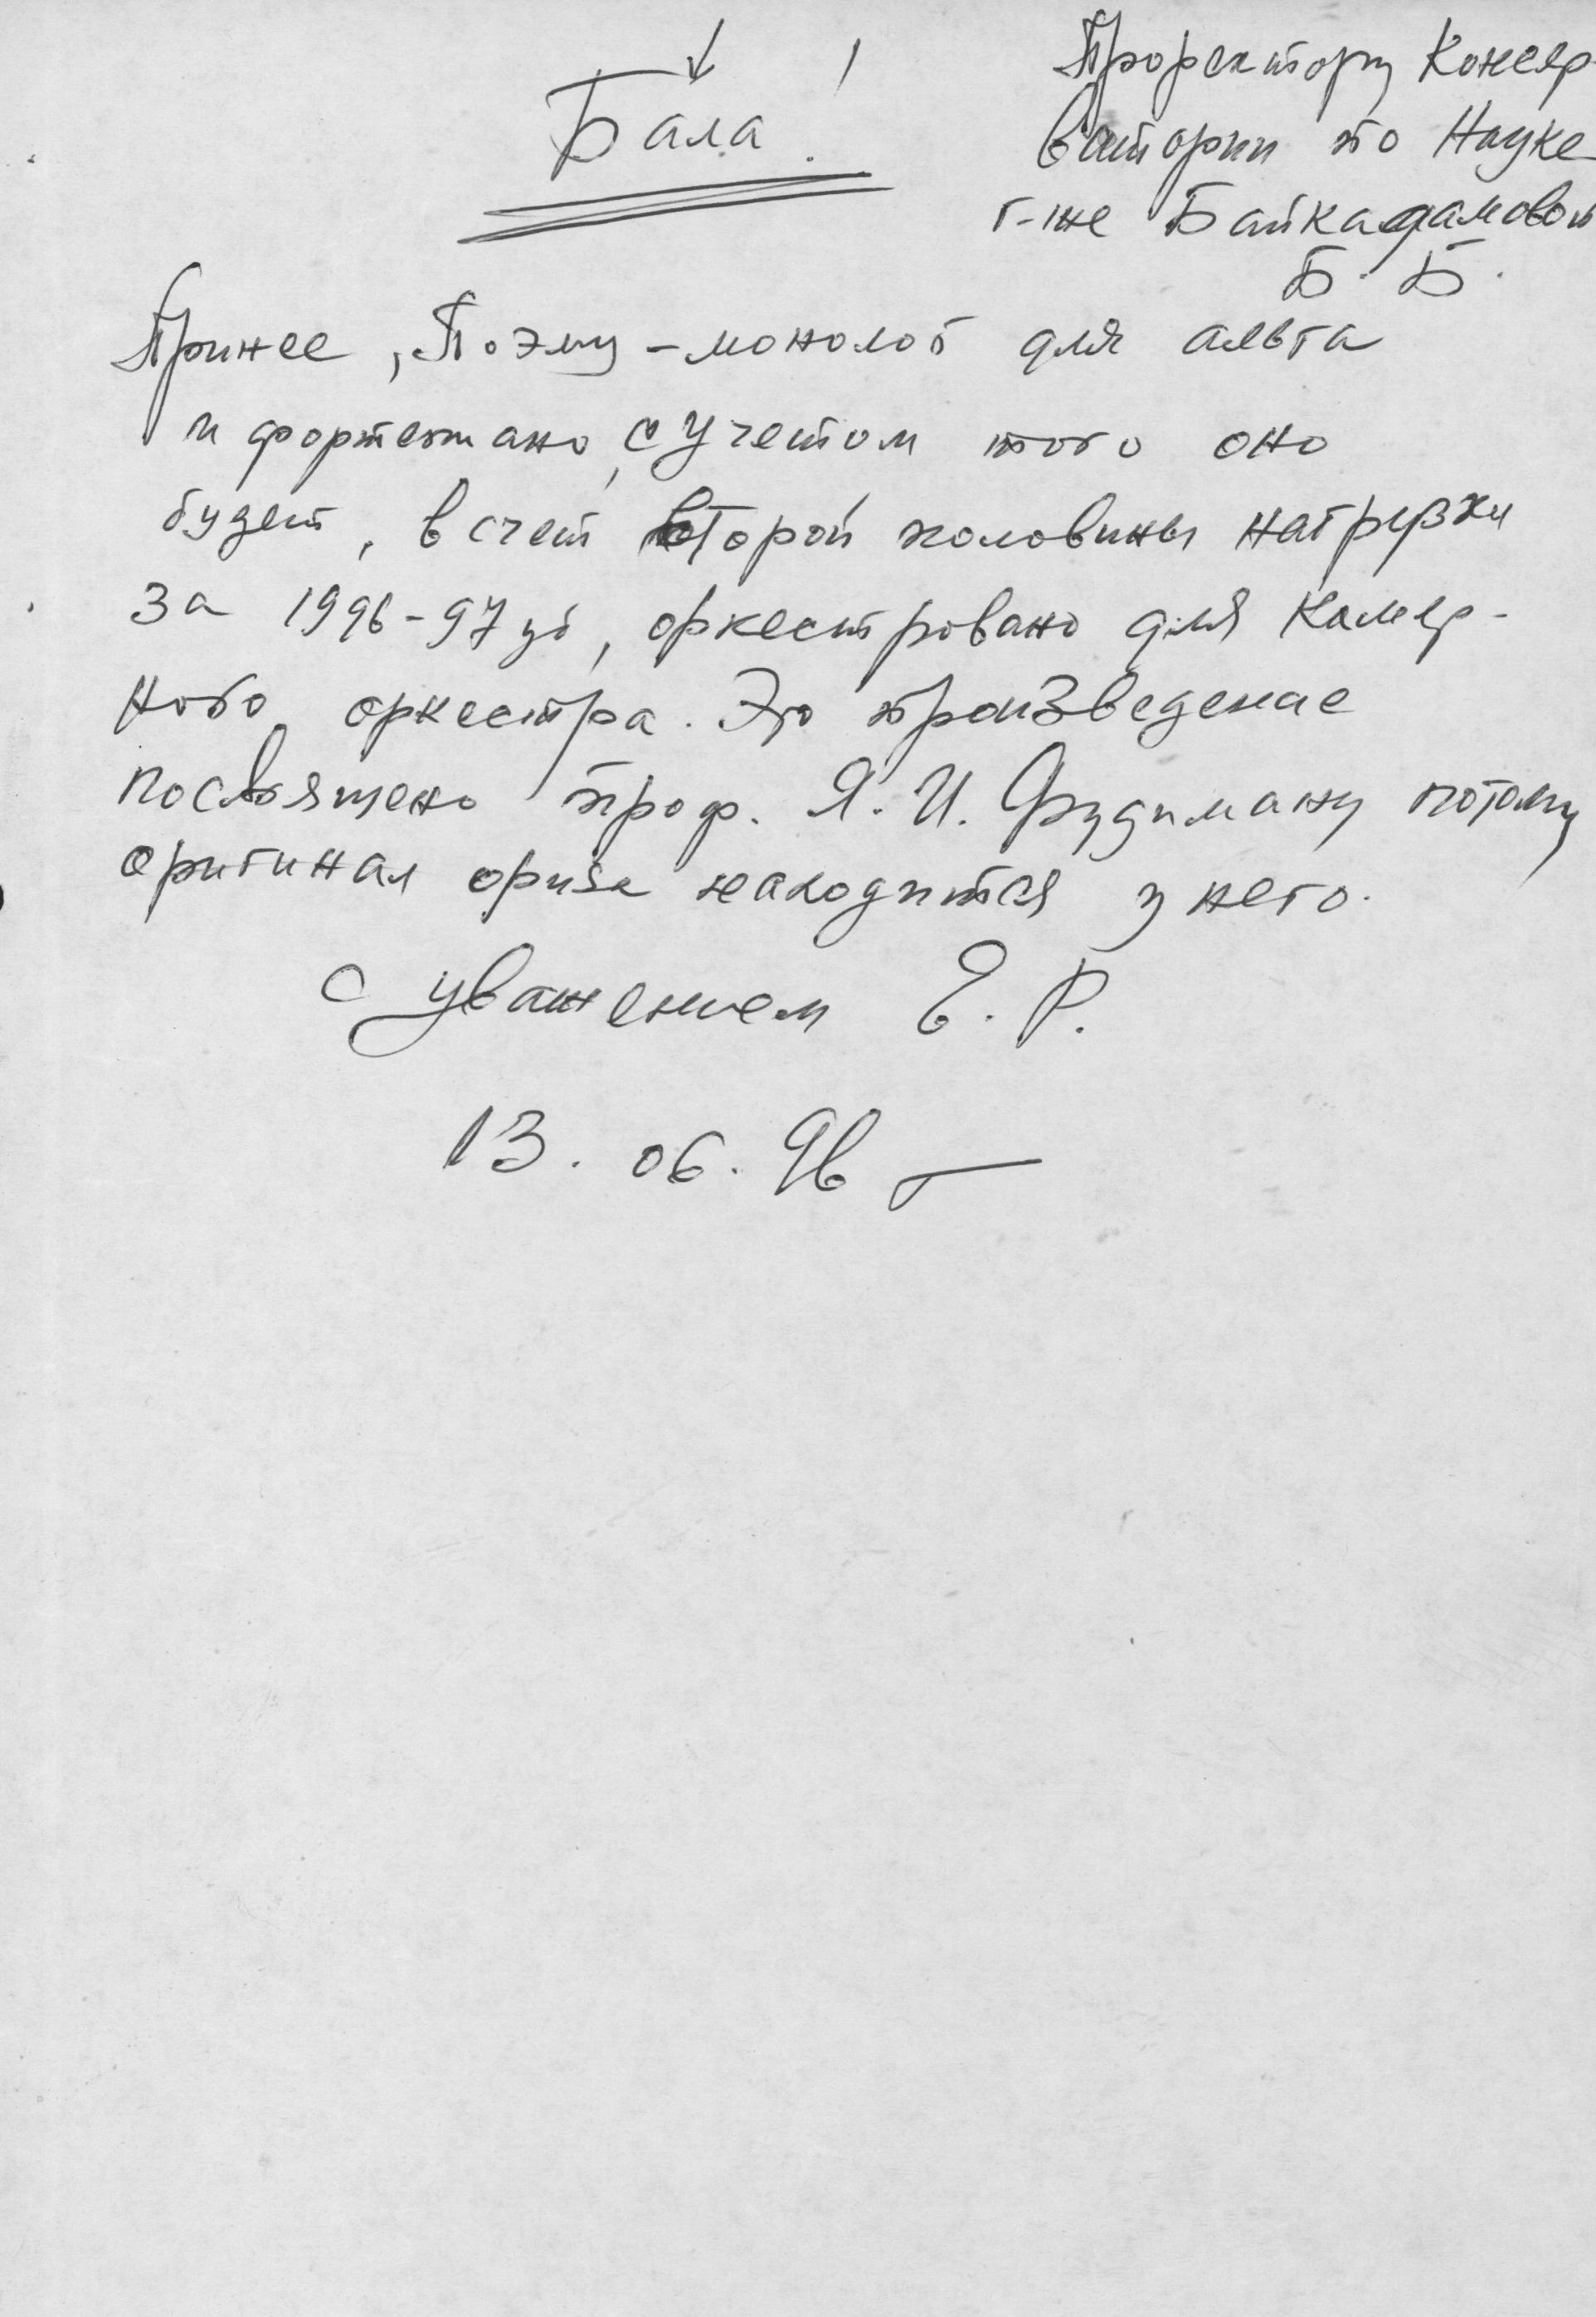 Проректору Консер-
ватории по Науке
г-же Байкадамовой
Б. Б.
Бала!
Принес „Поэму-монолог для альта
и фортепиано, с учетом того оно
будет, в счет второй половины нагрузки
за 1996-97 уг, оркестровано для Камер-
ного оркестра. Это произведение
посвящено проф. Я. И. Фудиману потому
оригинал находится у него.
С уважением Е. Р.
13. 06. 96